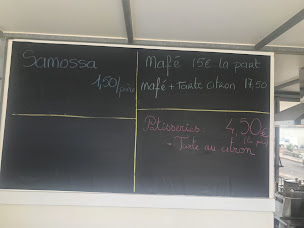 Samossa
1,50/pièce
Mafé 15€ la part
mafé + Tarte citron 17,50
Patisseries: 4,50€
(la part)
- Tarte au citron